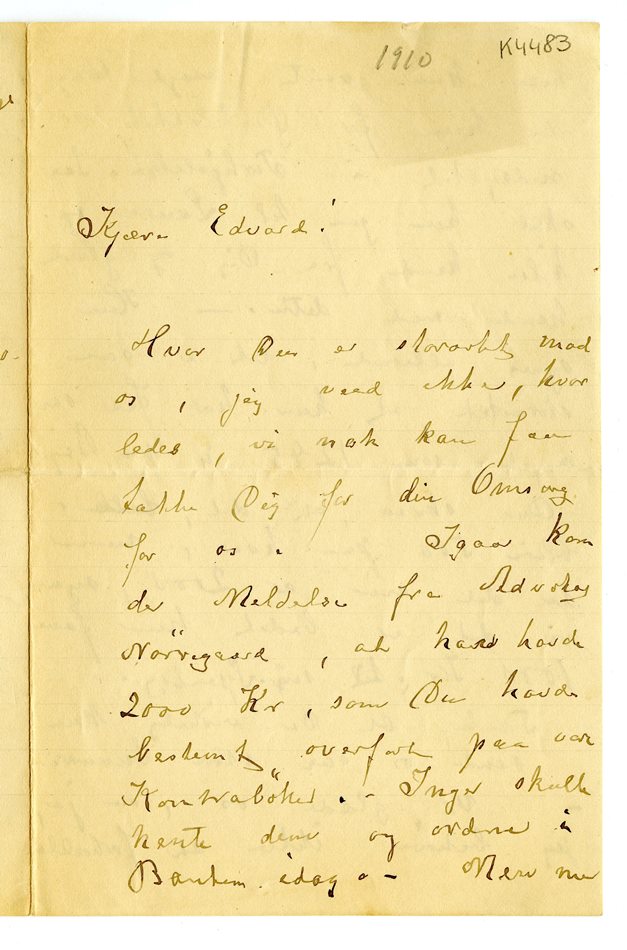 1910
K4483
Kjære Edvard!
Hvor Du er storartet mod
os, jeg veed ikke, hvor
ledes, vi nok kan faa
takke Dig for din Omsorg
for os. Igaar kom
der Meldelse fra Advokat
Nörregaard, at han havde
2000 Kr, som Du havde
bestemt overført paa vore
Kontraböker. – Inger skulle
hente dem og ordne i
Banken idag. – Men nu